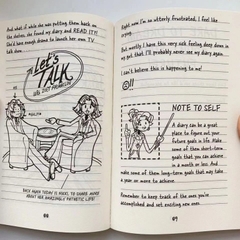 And what if while she was putting them back on
the shelves, she found my diary and READ IT?!
She'd have enough drama to launch her own TV
talk show.
Let's
TALK
BACK AGAIN TODAY IS NIKKI, TO SHARE MORE
ABOUT HER AMAZINGLY PATHETIC LIFE!
88
Right now I'm so utterly frustrated, I feel like
crying.
But mostly I have this very sick feeling deep down in
my gut that I'll probably never see my diary again.
I can't believe this is happening to me!
!!
NOTE TO SELF
A diary can be a great
place to figure out your
future goals in life. Make
some of them short-term
goals that you can achieve
in a month or less. And
make some of them long-term goals that may take
a year or more to achieve.
Remember to keep track of the ones you've
accomplished and set exciting new ones.
89